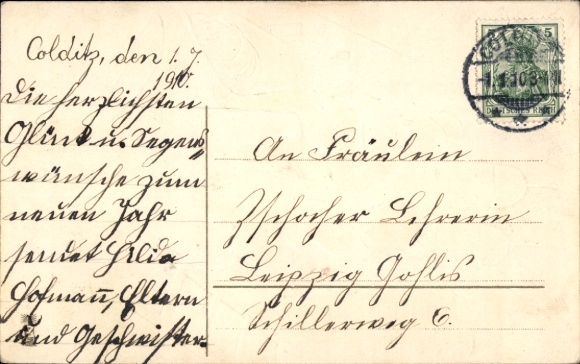 Colditz, den 1. J.
1910.
Die herzlichsten
Glück u. Segens
wünsche zum
neuen Jahr
sendet Hilda
Hofmann, Eltern
und Geschwister.
An Fräulein
Zschocher Lehrerin
Leipzig Gohlis
Schillerweg 6.
5
DEUTSCHES REICH